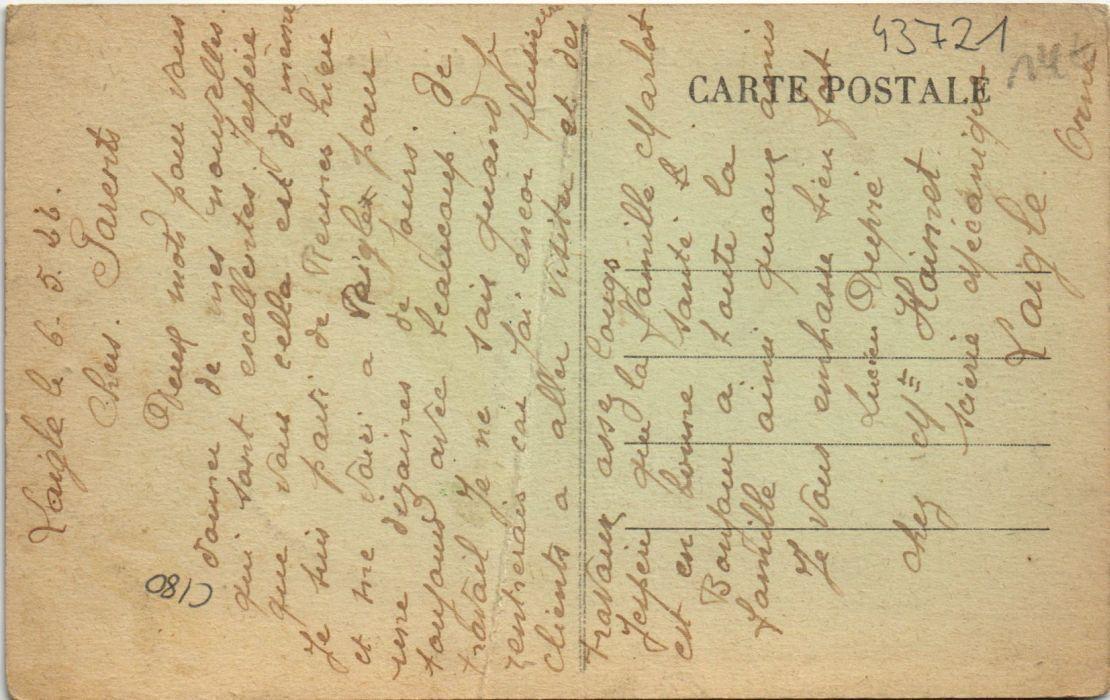 CARTE POSTALE
43721
C180
Laigle le 6. 5. 22.
Chers Parents
Deux mots pour vous
donner de mes nouvelles
qui sont excellentes j'espère
que vous cella est de même
Je suis parti de Rennes hier
et me voici a Laigle pour
une dizaines de jours.
toujours avec beaucoup de
travail Je ne sais quand
rentrerais car j'ai encor plusieurs
clients a aller visiter et des
travaux assez longs
J'espère que la famille Marlot
est en bonne santé &
Bonjour a toute la
famille ainsi quaux amis
Je vous embrasse bien fort
Lucien Dupré
chez Mr Hainet
scierie Mécanique
Laigle
Orne